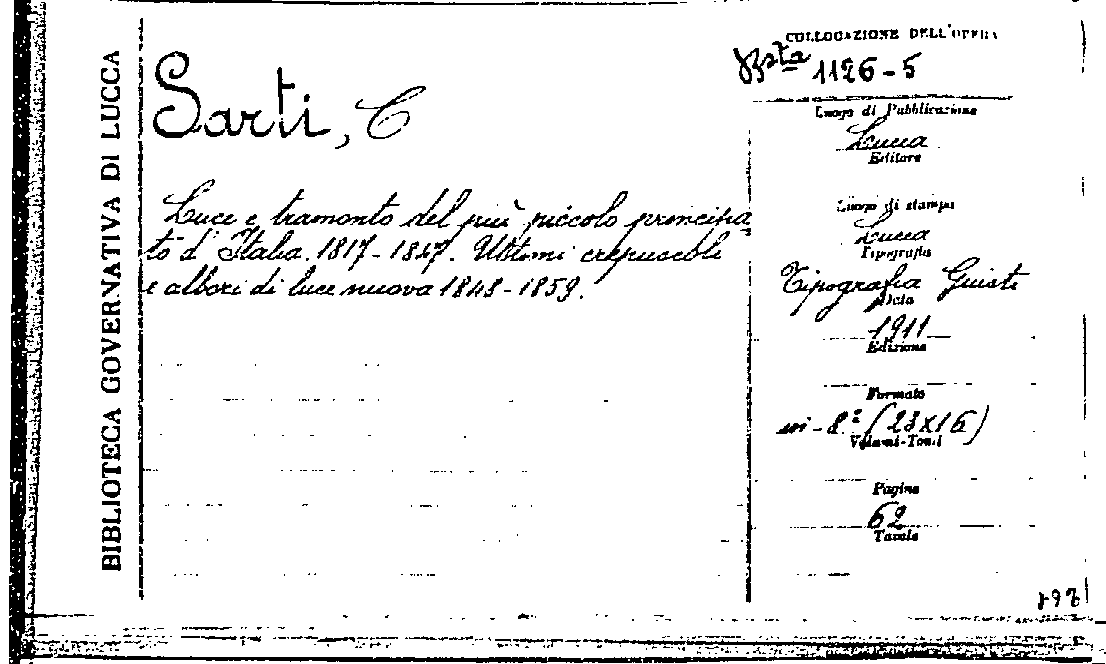 BIBLIOTECA GOVERNATIVA DI LUCCA
Sarti, C
Luce e tramonto del più piccolo principa
to d'Italia. 1817-1847. Ultimi crepuscoli
e albori di luce nuova 1848-1859.
COLLOCAZIONE DELL'OPERA
Bsta 1126-5
Luogo di Pubblicazione
Lucca
Editore
Luogo di stampa
Lucca
Tipografia
Tipografia Giusti
Data
1911
Edizione
Formato
in-8º (23x16)
Volumi-Tomi
Pagine
62
Tavole